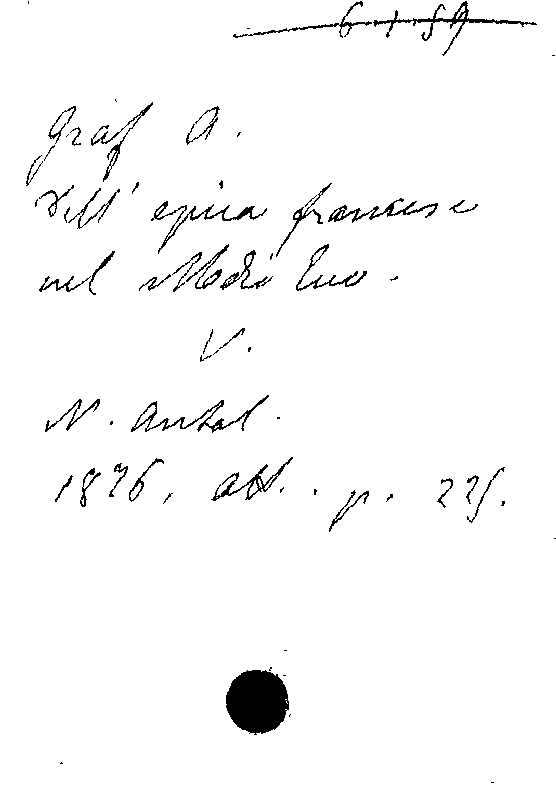 6.1.59
Graf A.
Dell' epica francese
nel Medio Evo.
V.
N. Antol.
1876, ott. . p. 225.